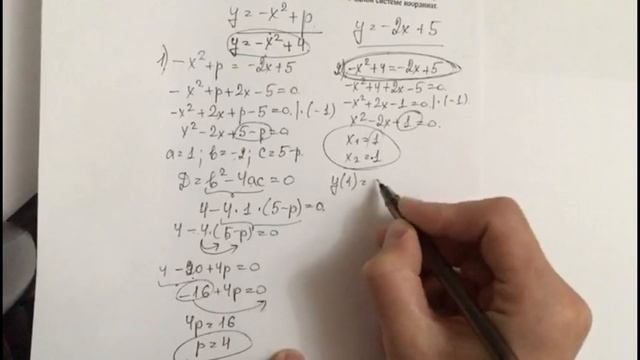 одной системе координат.
y = -x² + p.
y = -x² + 4
y = -2x + 5
1) -x² + p = -2x + 5
-x² + p + 2x - 5 = 0.
-x² + 2x + p - 5 = 0. | · (-1)
x² - 2x + 5 - p = 0.
a = 1; b = -2; c = 5 - p.
D = b² - 4ac = 0
4 - 4 · 1 · (5 - p) = 0.
4 - 4 · (5 - p) = 0
4 - 20 + 4p = 0
-16 + 4p = 0
4p = 16
p = 4
2) -x² + 4 = -2x + 5
-x² + 4 + 2x - 5 = 0.
-x² + 2x - 1 = 0. | · (-1)
x² - 2x + 1 = 0.
x₁ = 1
x₂ = 1
y(1) = -